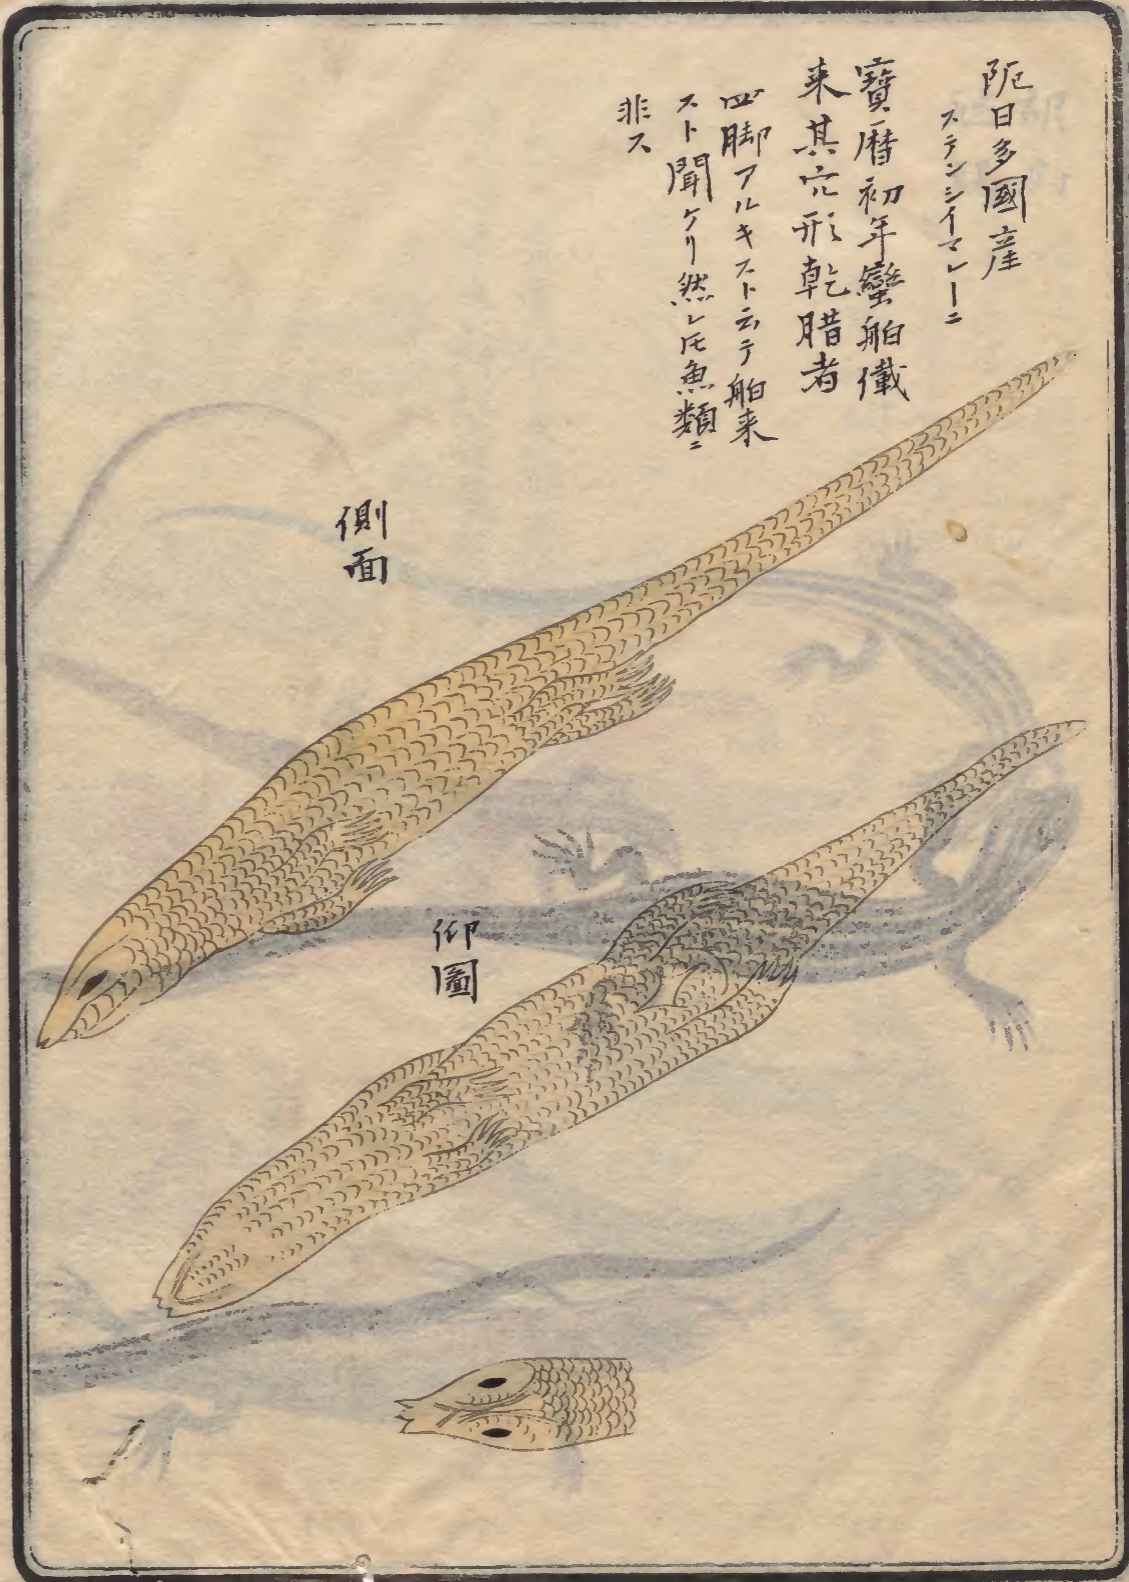 阨日多國産
ステンシイマレーニ
寶暦初年蠻舶儎
来其完形乾腊者
四脚アルキスト云テ舶来
スト聞ケリ然レ𪜈魚類ニ
非ス
側面
仰圖